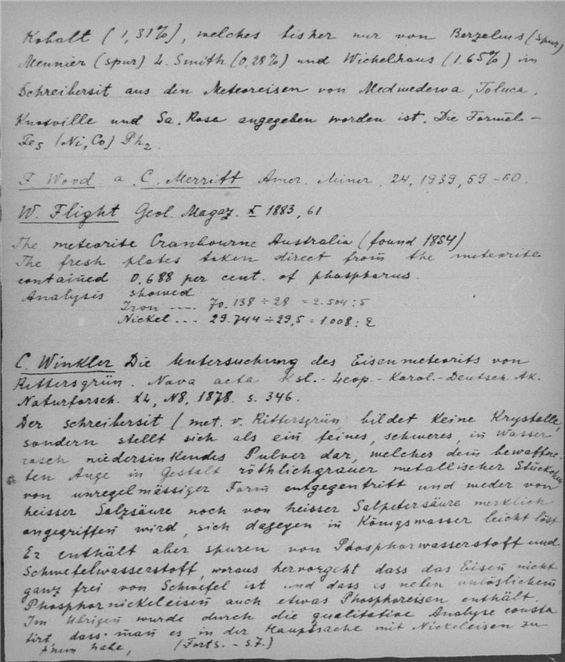 Kobalt (1,31%), welches bisher nur von Berzelius (spur)
Meunier (spur) L. Smith (0,28%) und Wichelhaus (1.65%) im
Schreibersit aus den Meteoreisen von Medwedewa, Toluca,
Knoxville und Sa. Rosa angegeben worden ist. Die Formel –
Fe5 (Ni, Co) Ph2.
F. Wood a. C. Merritt Amer. Miner, 24, 1939, 59-60.
W. Flight Geol. Magaz. X 1883, 61
The meteorite Cranbourne Australia (found 1854)
The fresh plates taken direct from the meteorite
contained 0,688 per cent. of phosphorus.
Analysis showed
Iron .... 70,138 ÷ 28 = 2.504 : 5
Nickel ... 29.744 ÷ 29,5 = 1.008 : 2
C. Winkler Die Untersuchung des Eisenmeteorits von
Rittersgrün. Nova acta Ksl.- Leop - Karol.-Deutsch. Ak.
Naturforsch. N8, 1878. s. 346.
Der schreibersit (met. v. Rittersgrün) bildet keine Krystalle,
sondern stellt sich als ein feines, schweres, in Wasser
rasch niedersinkendes Pulver dar, welches dem bewaffne-
ten Auge in Gestalt röthlichgrauer metallischer Stückchen
von unregelmässiger Form entgegentritt und weder von
heisser Salzsäure noch von heisser Salpetersäure merklich
angegriffen wird, sich dagegen in Königswasser leicht löst
Er enthält aber spuren von Phosphorwasserstoff und
Schwefelwasserstoff, woraus hervorgeht dass das Eisen nicht
ganz frei von Schwefel ist und dass es neben unlöslichem
Phosphornickeleisen auch etwas Phosphoreisen enthält.
Im Übrigen wurde durch die qualitative Analyse consta
tirt, dass man es in der Hauptsache mit Nickeleisen zu
thun habe, (Forts. - 57.)